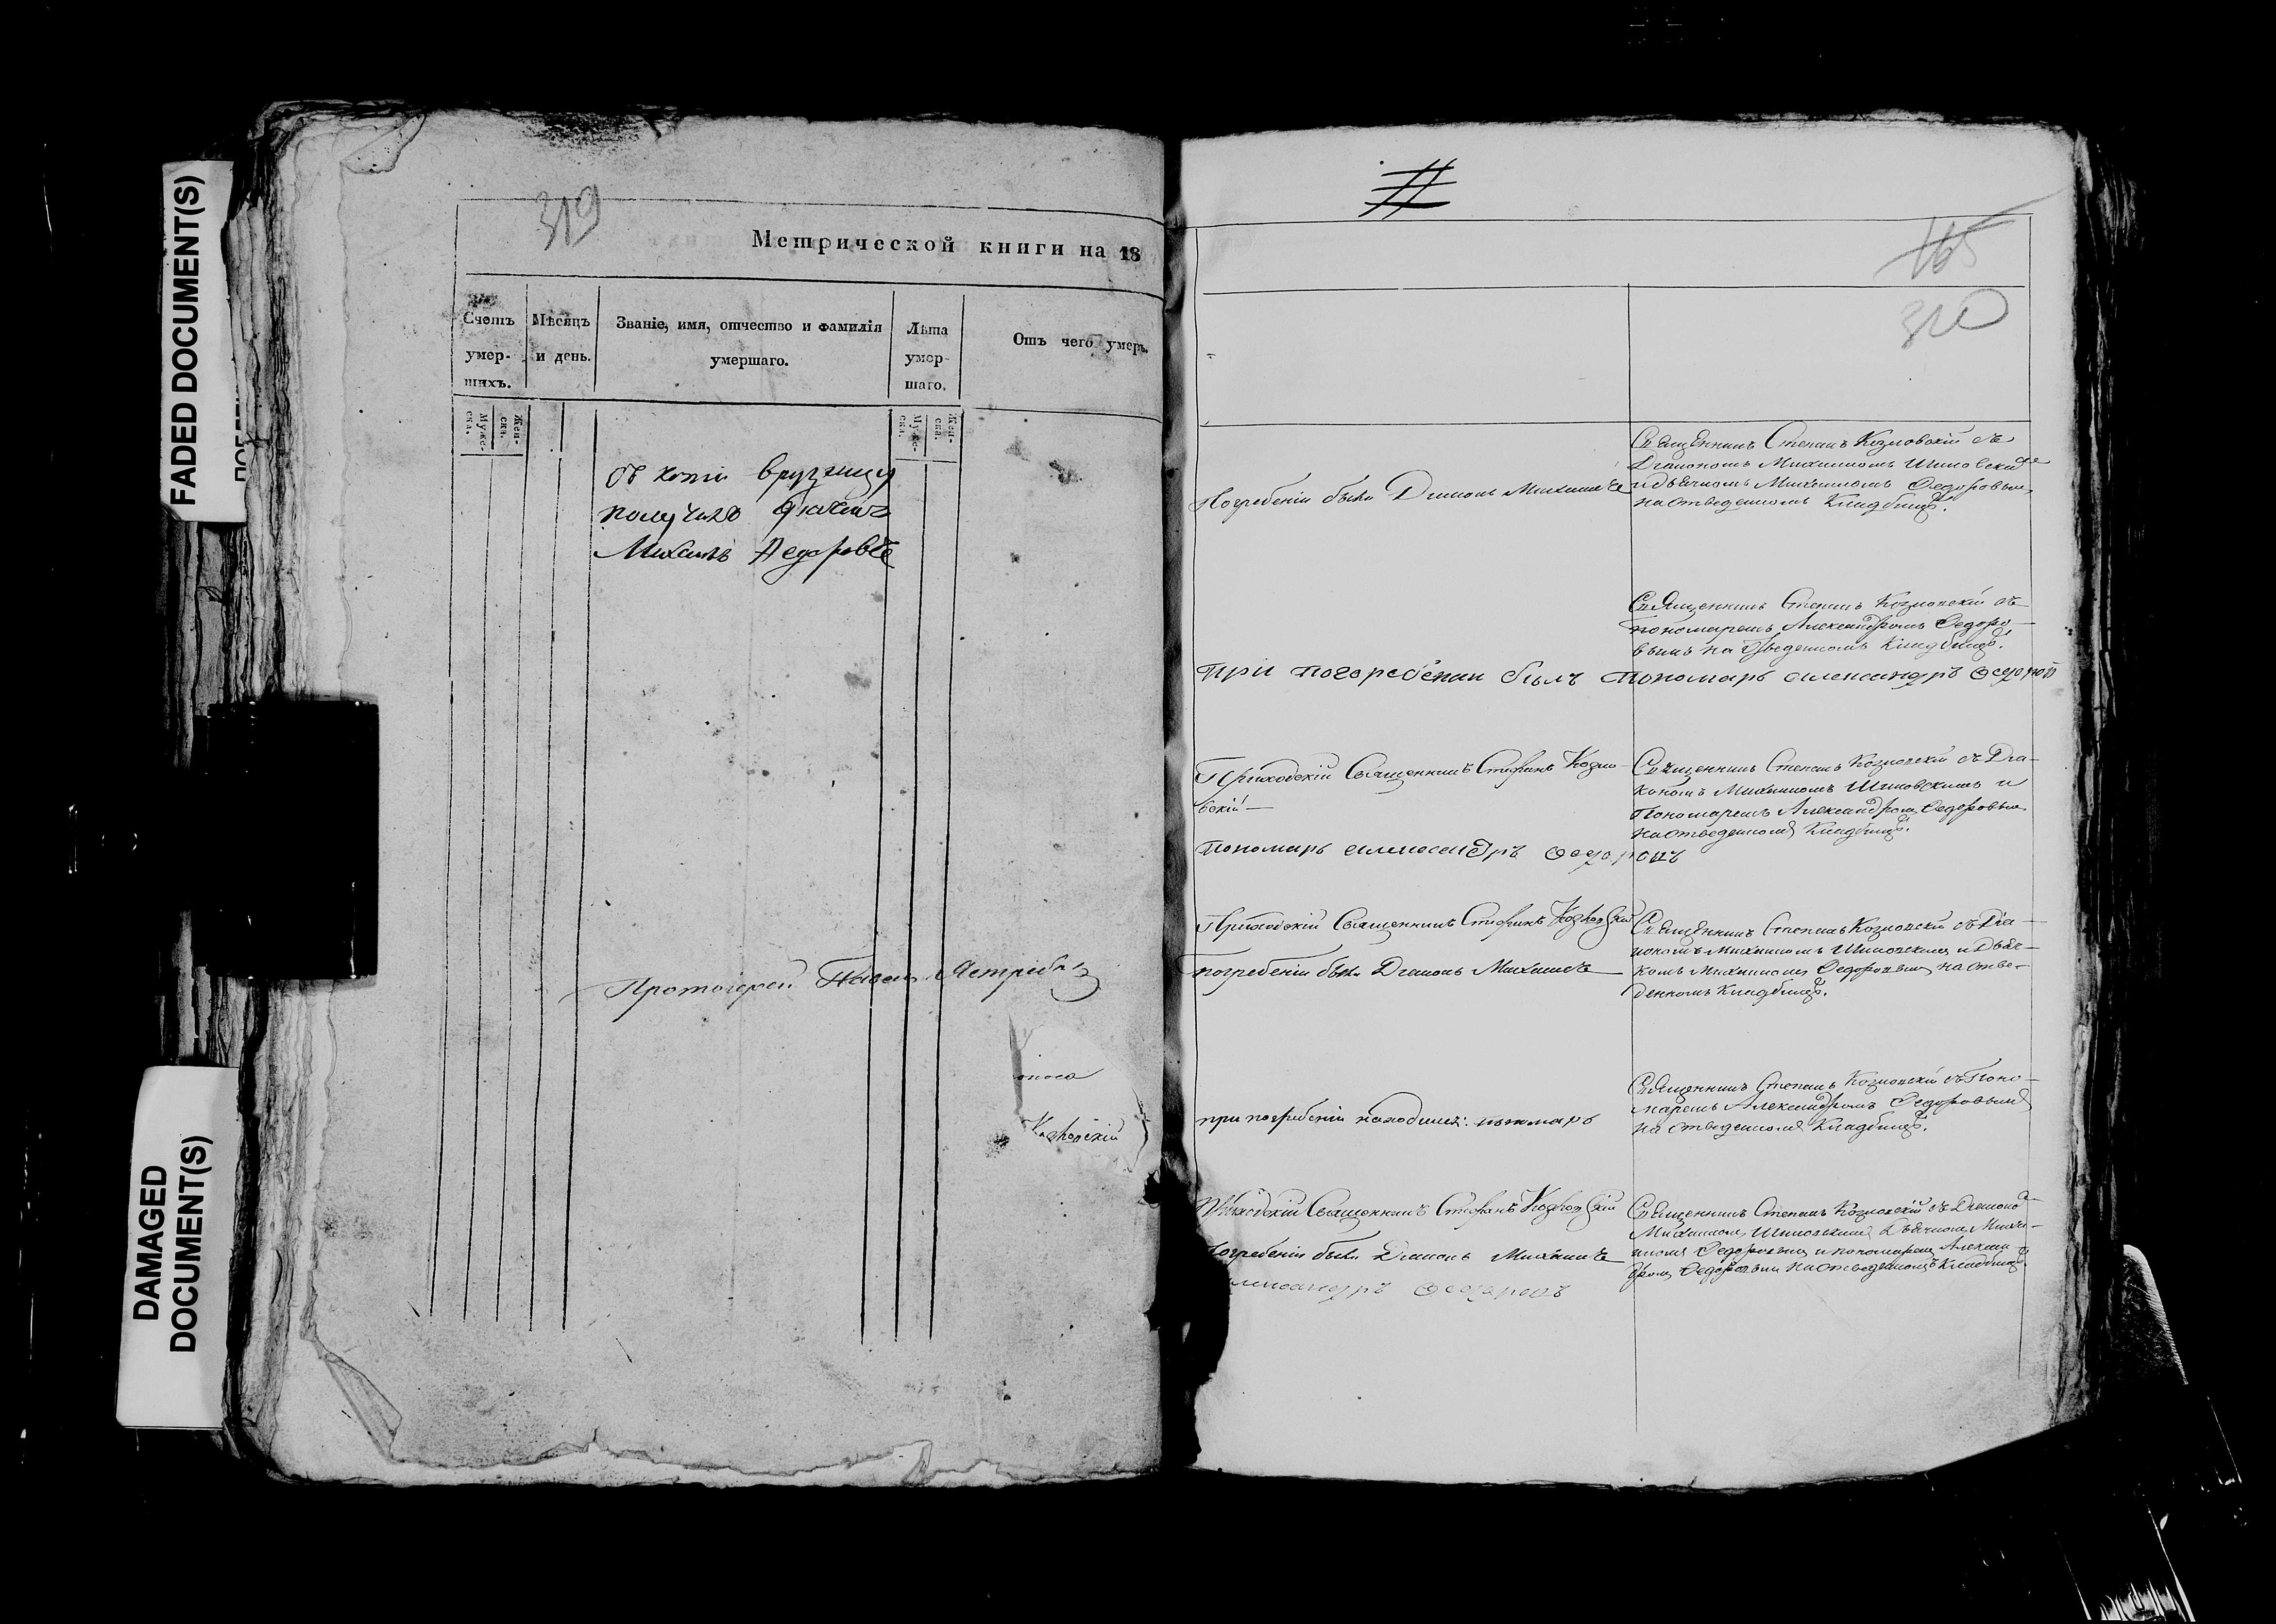 FADED DOCUMENT(S)
DAMAGED
DOCUMENT(S)
319
Метрической книги на 18
Счетъ
умер-
шихъ.
Мѣсяцъ
и день.
Званіе, имя, отчество и фамилія
умершаго.
Лѣта
умер-
шаго.
Отъ чего умеръ.
Мужс-
ска.
Жен-
ска.
Мужс-
ска.
Жен-
ска.
получилъ
Михаилъ Федоровъ
Протоіерей Павелъ Ястребовъ
Козловскій
165
320
Погребеніи былъ Діаконъ Михаилъ
Священникъ Степанъ Козловскій съ
Діакономъ Михаиломъ Шиповскимъ
и дьячкомъ Михаиломъ Федоровым
на отведенномъ Кладбищѣ.
Священникъ Степанъ Козловскій съ
пономаремъ Александромъ Федоро-
вымъ на отведенномъ Кладбищѣ.
при погоребении былъ пономарь Александръ Федоровъ
Приходскій Священникъ Стефанъ Козло-
вскій
пономарь Александръ Федоровъ
Священникъ Степанъ Козловскій съ Діа-
кономъ Михаиломъ Шиповскимъ и
пономаремъ Александром Федоровым
на отведенном Кладбищѣ.
Приходскій Священникъ Стефанъ Козловскій
погребеніи былъ Діаконъ Михаилъ
Священникъ Степанъ Козловскій съ Діа-
кономъ Михаиломъ Шиповским и Дьяч-
комъ Михаилом Федоровым на отве-
денномъ Кладбищѣ.
при погребеніи находился: пономарь
Священникъ Степанъ Козловскій съ Поно-
маремъ Александромъ Федоровым
на отведенном Кладбищѣ.
Приходскій Священникъ Стефанъ Козловскій
погребеніи былъ Діаконъ Михаилъ
Александръ Федоровъ
Священникъ Степанъ Козловскій съ Діаконо
Михаилом Шиповским Дьячком Михаи-
лом Федоровым и пономарем Алексан
дром Федоровым на отведенномъ Кладбищѣ.